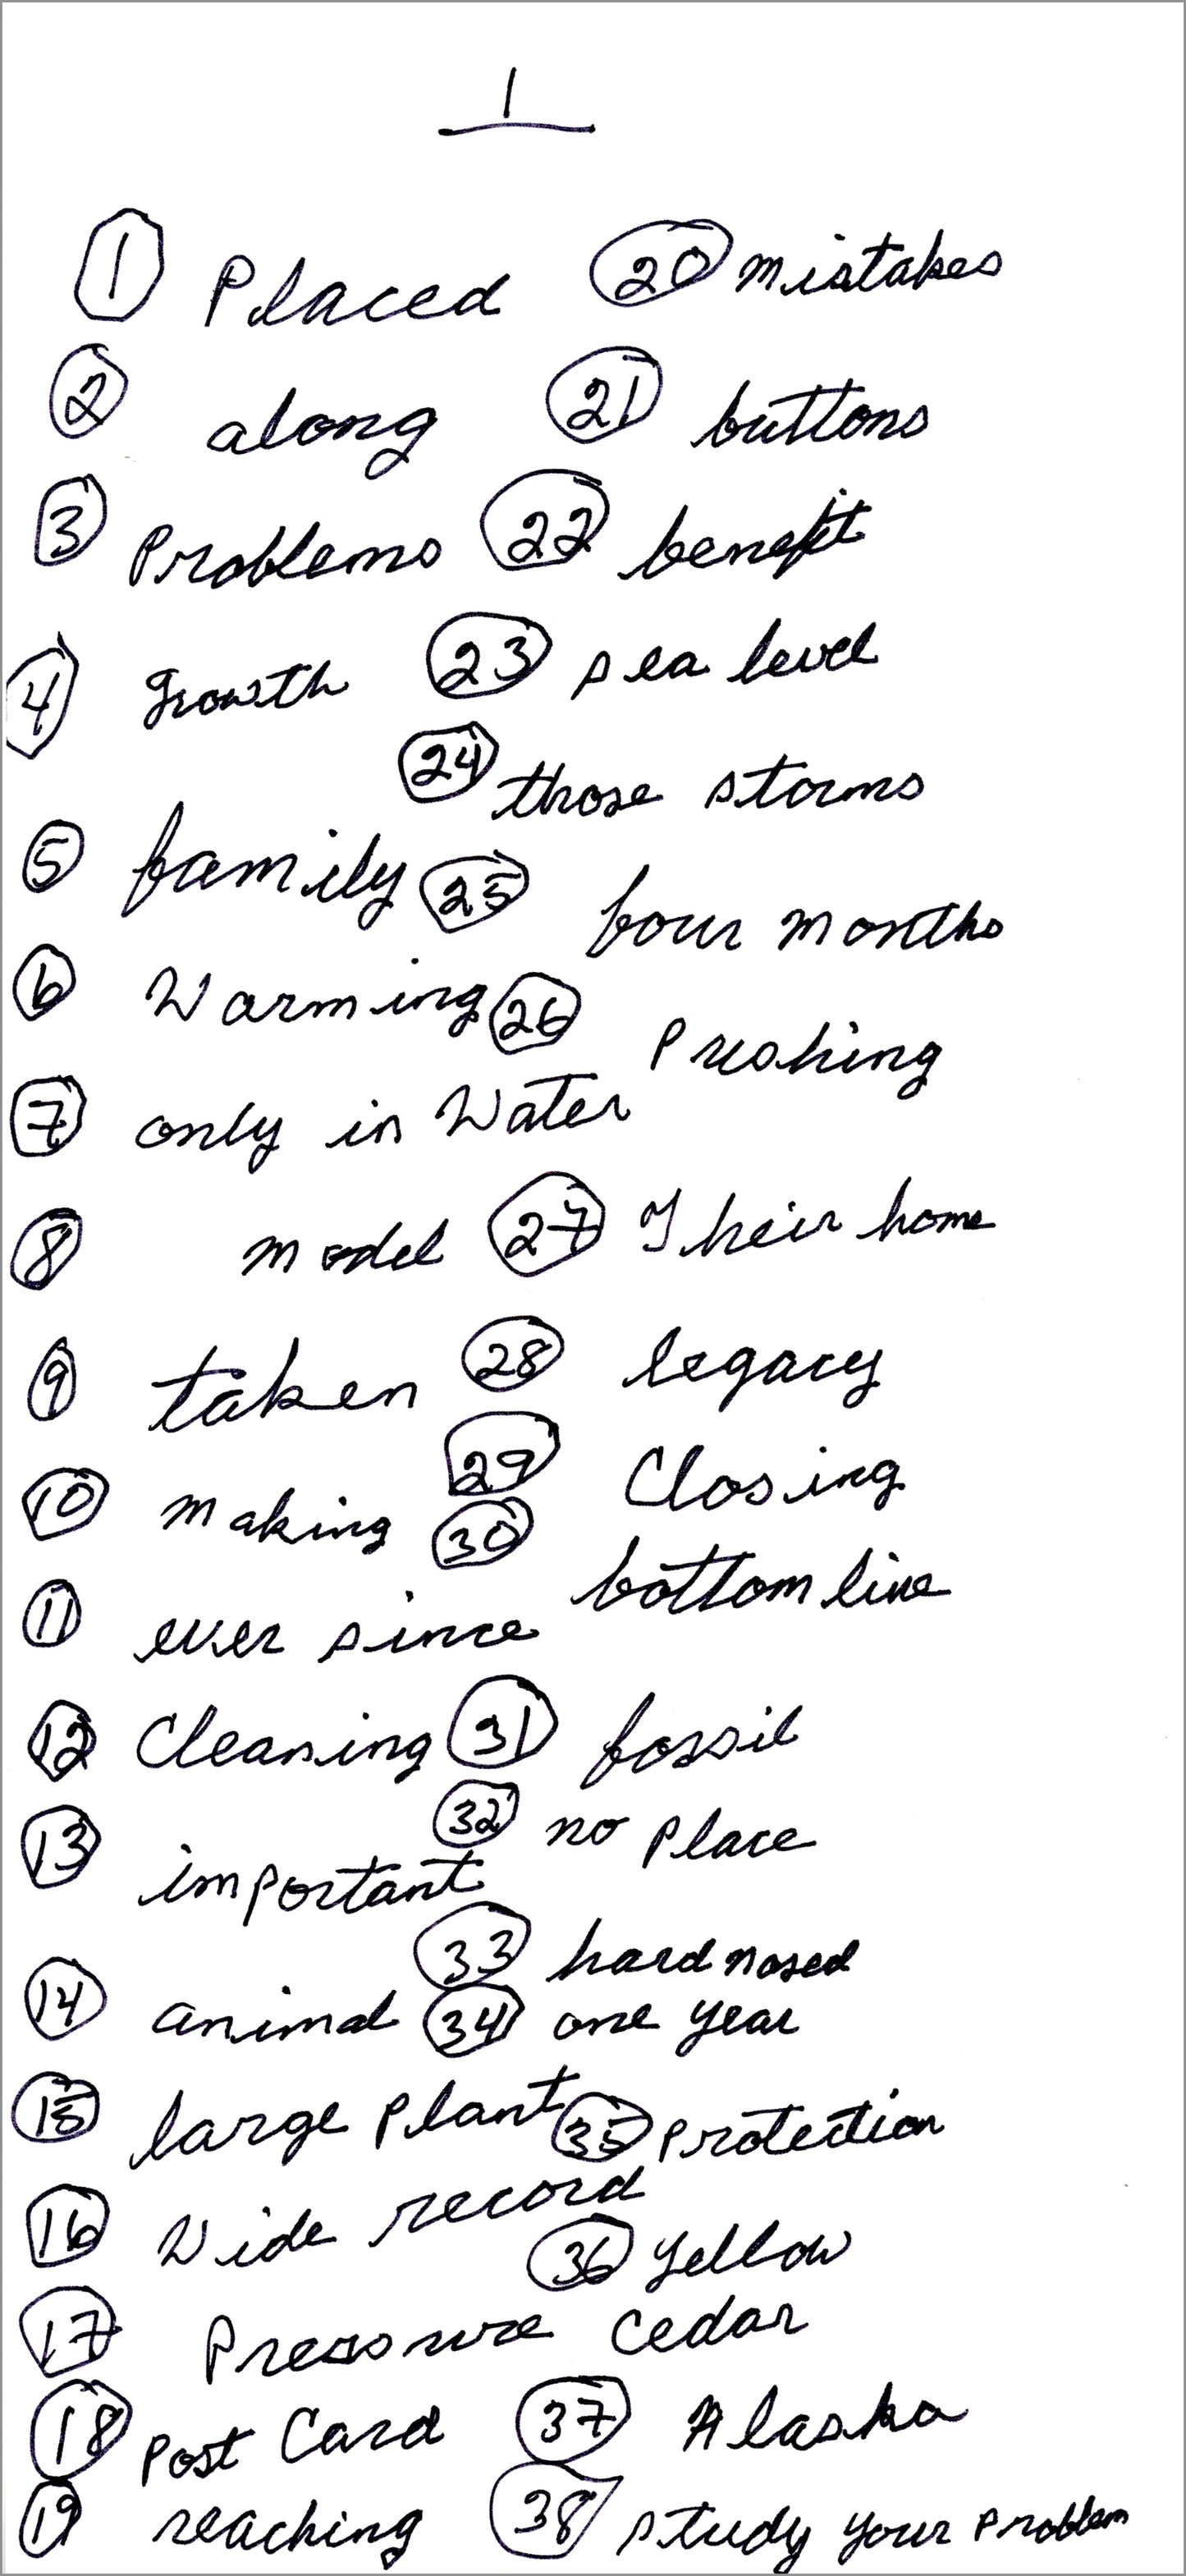 1
1 Placed
2 along
3 Problems
4 Growth
5 family
6 Warming
7 only in Water
8 model
9 taken
10 making
11 ever since
12 Cleaning
13 important
14 animal
15 large Plant
16 Wide record
17 Pressure
18 Post Card
19 reaching
20 mistakes
21 buttons
22 benefit
23 sea level
24 those storms
25 four months
26 Pushing
27 Their home
28 legacy
29 Closing
30 bottom line
31 fossil
32 no Place
33 hard nosed
34 one year
35 Protection
36 yellow
cedar
37 Alaska
38 study your Problem